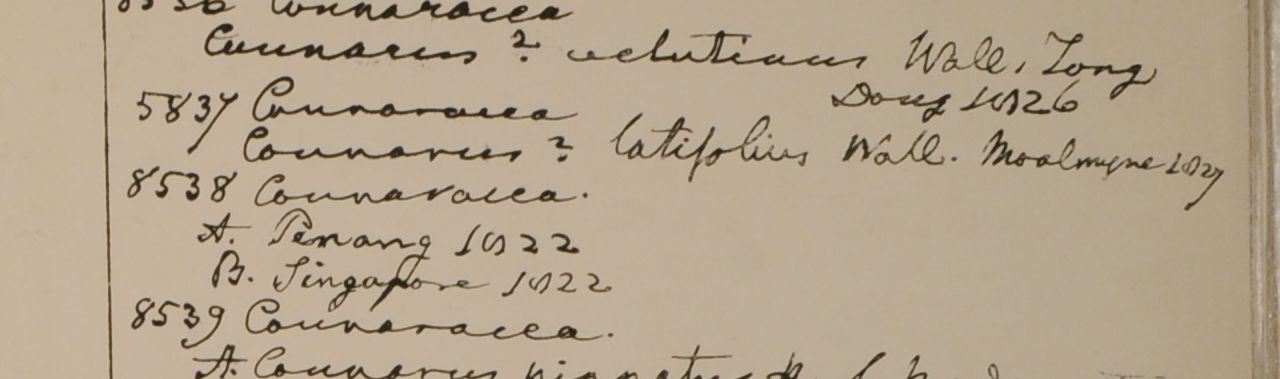 8536 Connaracea
Connarus ? velutinus Wall. Tong
Dong 1826
5837 Connaracea
Connarus ? latifolius Wall. Moalmyne 1827
8538 Connaracea.
A. Penang 1822
B. Singapore 1822
8539 Connaracea.
A. Connarus pinnatus